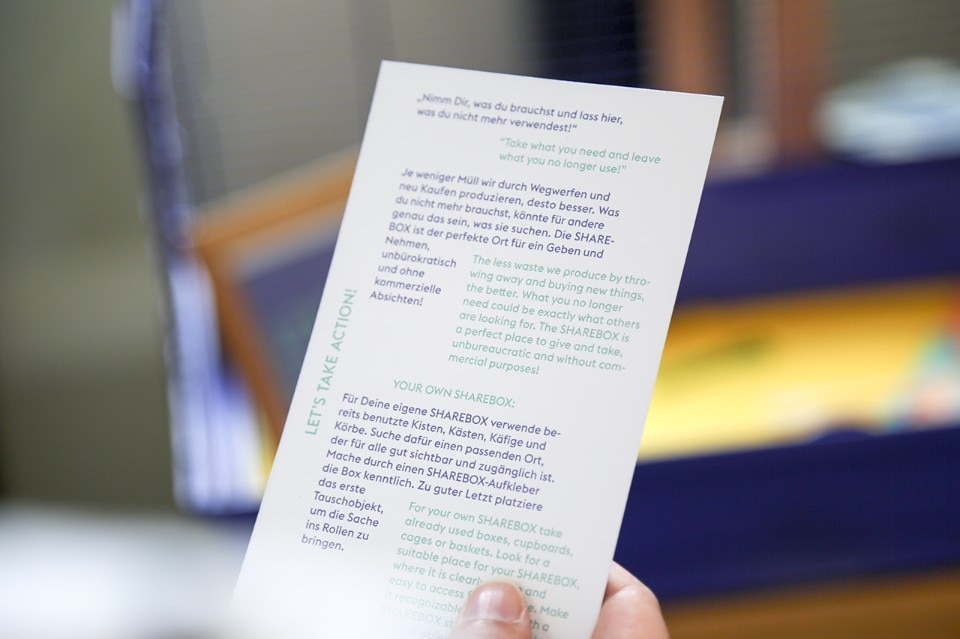 „Nimm Dir, was du brauchst und lass hier,
was du nicht mehr verwendest!“
“Take what you need and leave
what you no longer use!”
Je weniger Müll wir durch Wegwerfen und
neu Kaufen produzieren, desto besser. Was
du nicht mehr brauchst, könnte für andere
genau das sein, was sie suchen. Die SHARE-
BOX ist der perfekte Ort für ein Geben und
Nehmen,
unbürokratisch
und ohne
kommerzielle
Absichten!
The less waste we produce by thro-
wing away and buying new things,
the better. What you no longer
need could be exactly what others
are looking for. The SHAREBOX is
a perfect place to give and take,
unbureaucratic and without com-
mercial purposes!
LET'S TAKE ACTION!
YOUR OWN SHAREBOX:
Für Deine eigene SHAREBOX verwende be-
reits benutzte Kisten, Kästen, Käfige und
Körbe. Suche dafür einen passenden Ort,
der für alle gut sichtbar und zugänglich ist.
Mache durch einen SHAREBOX-Aufkleber
die Box kenntlich. Zu guter Letzt platziere
das erste
Tauschobjekt,
um die Sache
ins Rollen zu
bringen.
For your own SHAREBOX take
already used boxes, cupboards,
cages or baskets. Look for a
suitable place for your SHAREBOX,
where it is clearly and
easy to access Make
it recognizable a